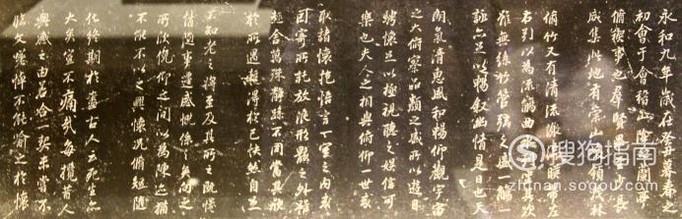 永和九年歲在癸丑暮春之
初會于會稽山陰之蘭亭
脩禊事也群賢畢至少長
咸集此地有崇山峻領茂林
脩竹又有清流激湍暎帶左
右引以為流觴曲水列坐其次
雖無絲竹管弦之盛一觴一
詠亦足以暢叙幽情是日也天
朗氣清惠風和暢仰觀宇宙
之大俯察品類之盛所以遊目
騁懷足以極視聽之娛信可
樂也夫人之相與俯仰一世或
取諸懷抱悟言一室之內或
因寄所託放浪形骸之外雖
趣舍萬殊靜躁不同當其欣
於所遇暫得於己快然自足
不知老之將至及其所之既惓
情隨事遷感慨係之矣向之
所欣俛仰之間以為陳迹猶
不能不以之興懷況脩短隨
化終期於盡古人云死生亦
大矣豈不痛哉每攬昔人
興感之由若合一契未嘗不
臨文嗟悼不能喻之於懷
搜狗指南
zhinan.sogou.com